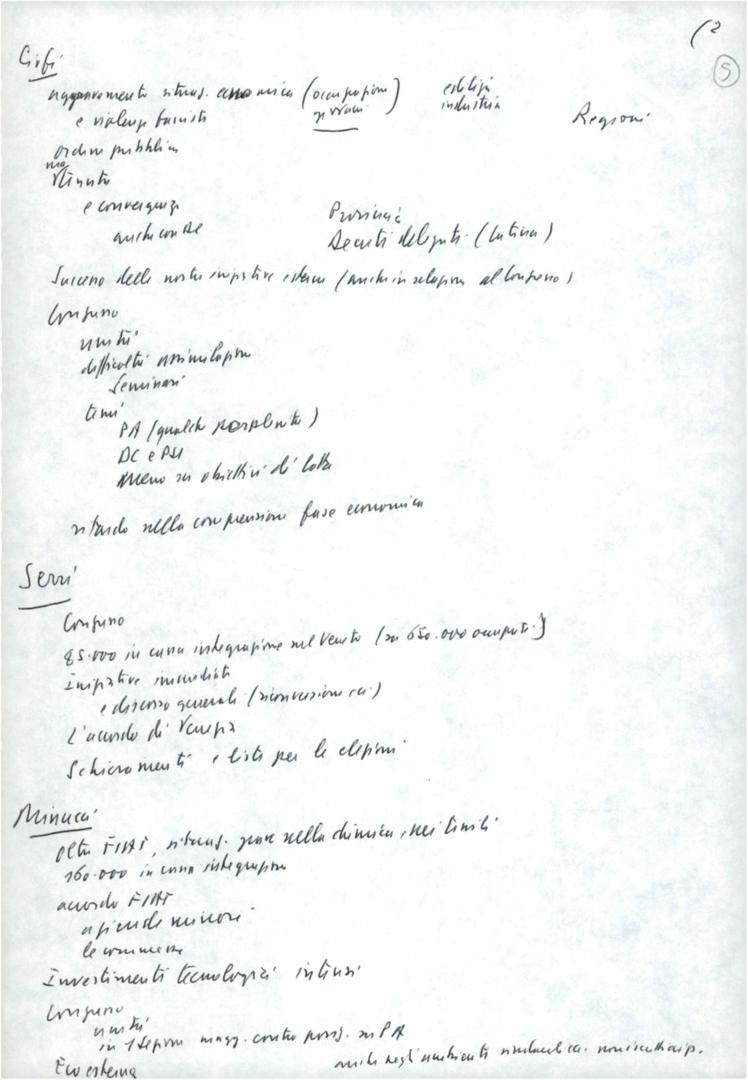 (2
5
aggravamento situaz. economica (occupazione giovani) edilizia industria
e violenza fascista
Regioni
ordine pubblico
e convergenze
anche con DC
Provincia
Decreti delegati (Latina)
Successo delle nostre iniziative esterne (anche in relazione al Congresso)
Congresso
unità
difficoltà assimilazione
Seminari
temi
PA (qualche perplessità)
DC e PSI
meno su obiettivi di lotta
ritardo nella comprensione fase economica
Serri
Congresso
85.000 in cassa integrazione nel Veneto (su 650.000 occupati)
Iniziative immediate
e discorso generale (riconversione ecc.)
L'accordo di Venezia
Schieramenti e liste per le elezioni
Minucci
oltre FIAT, situaz. grave nella chimica, nei tessili
160.000 in cassa integrazione
accordo FIAT
aziende minori
le commesse
Investimenti tecnologici intensi
Congresso
unità
in 1 sezione magg. contro posiz. su PA
anche negli
Eco esterna